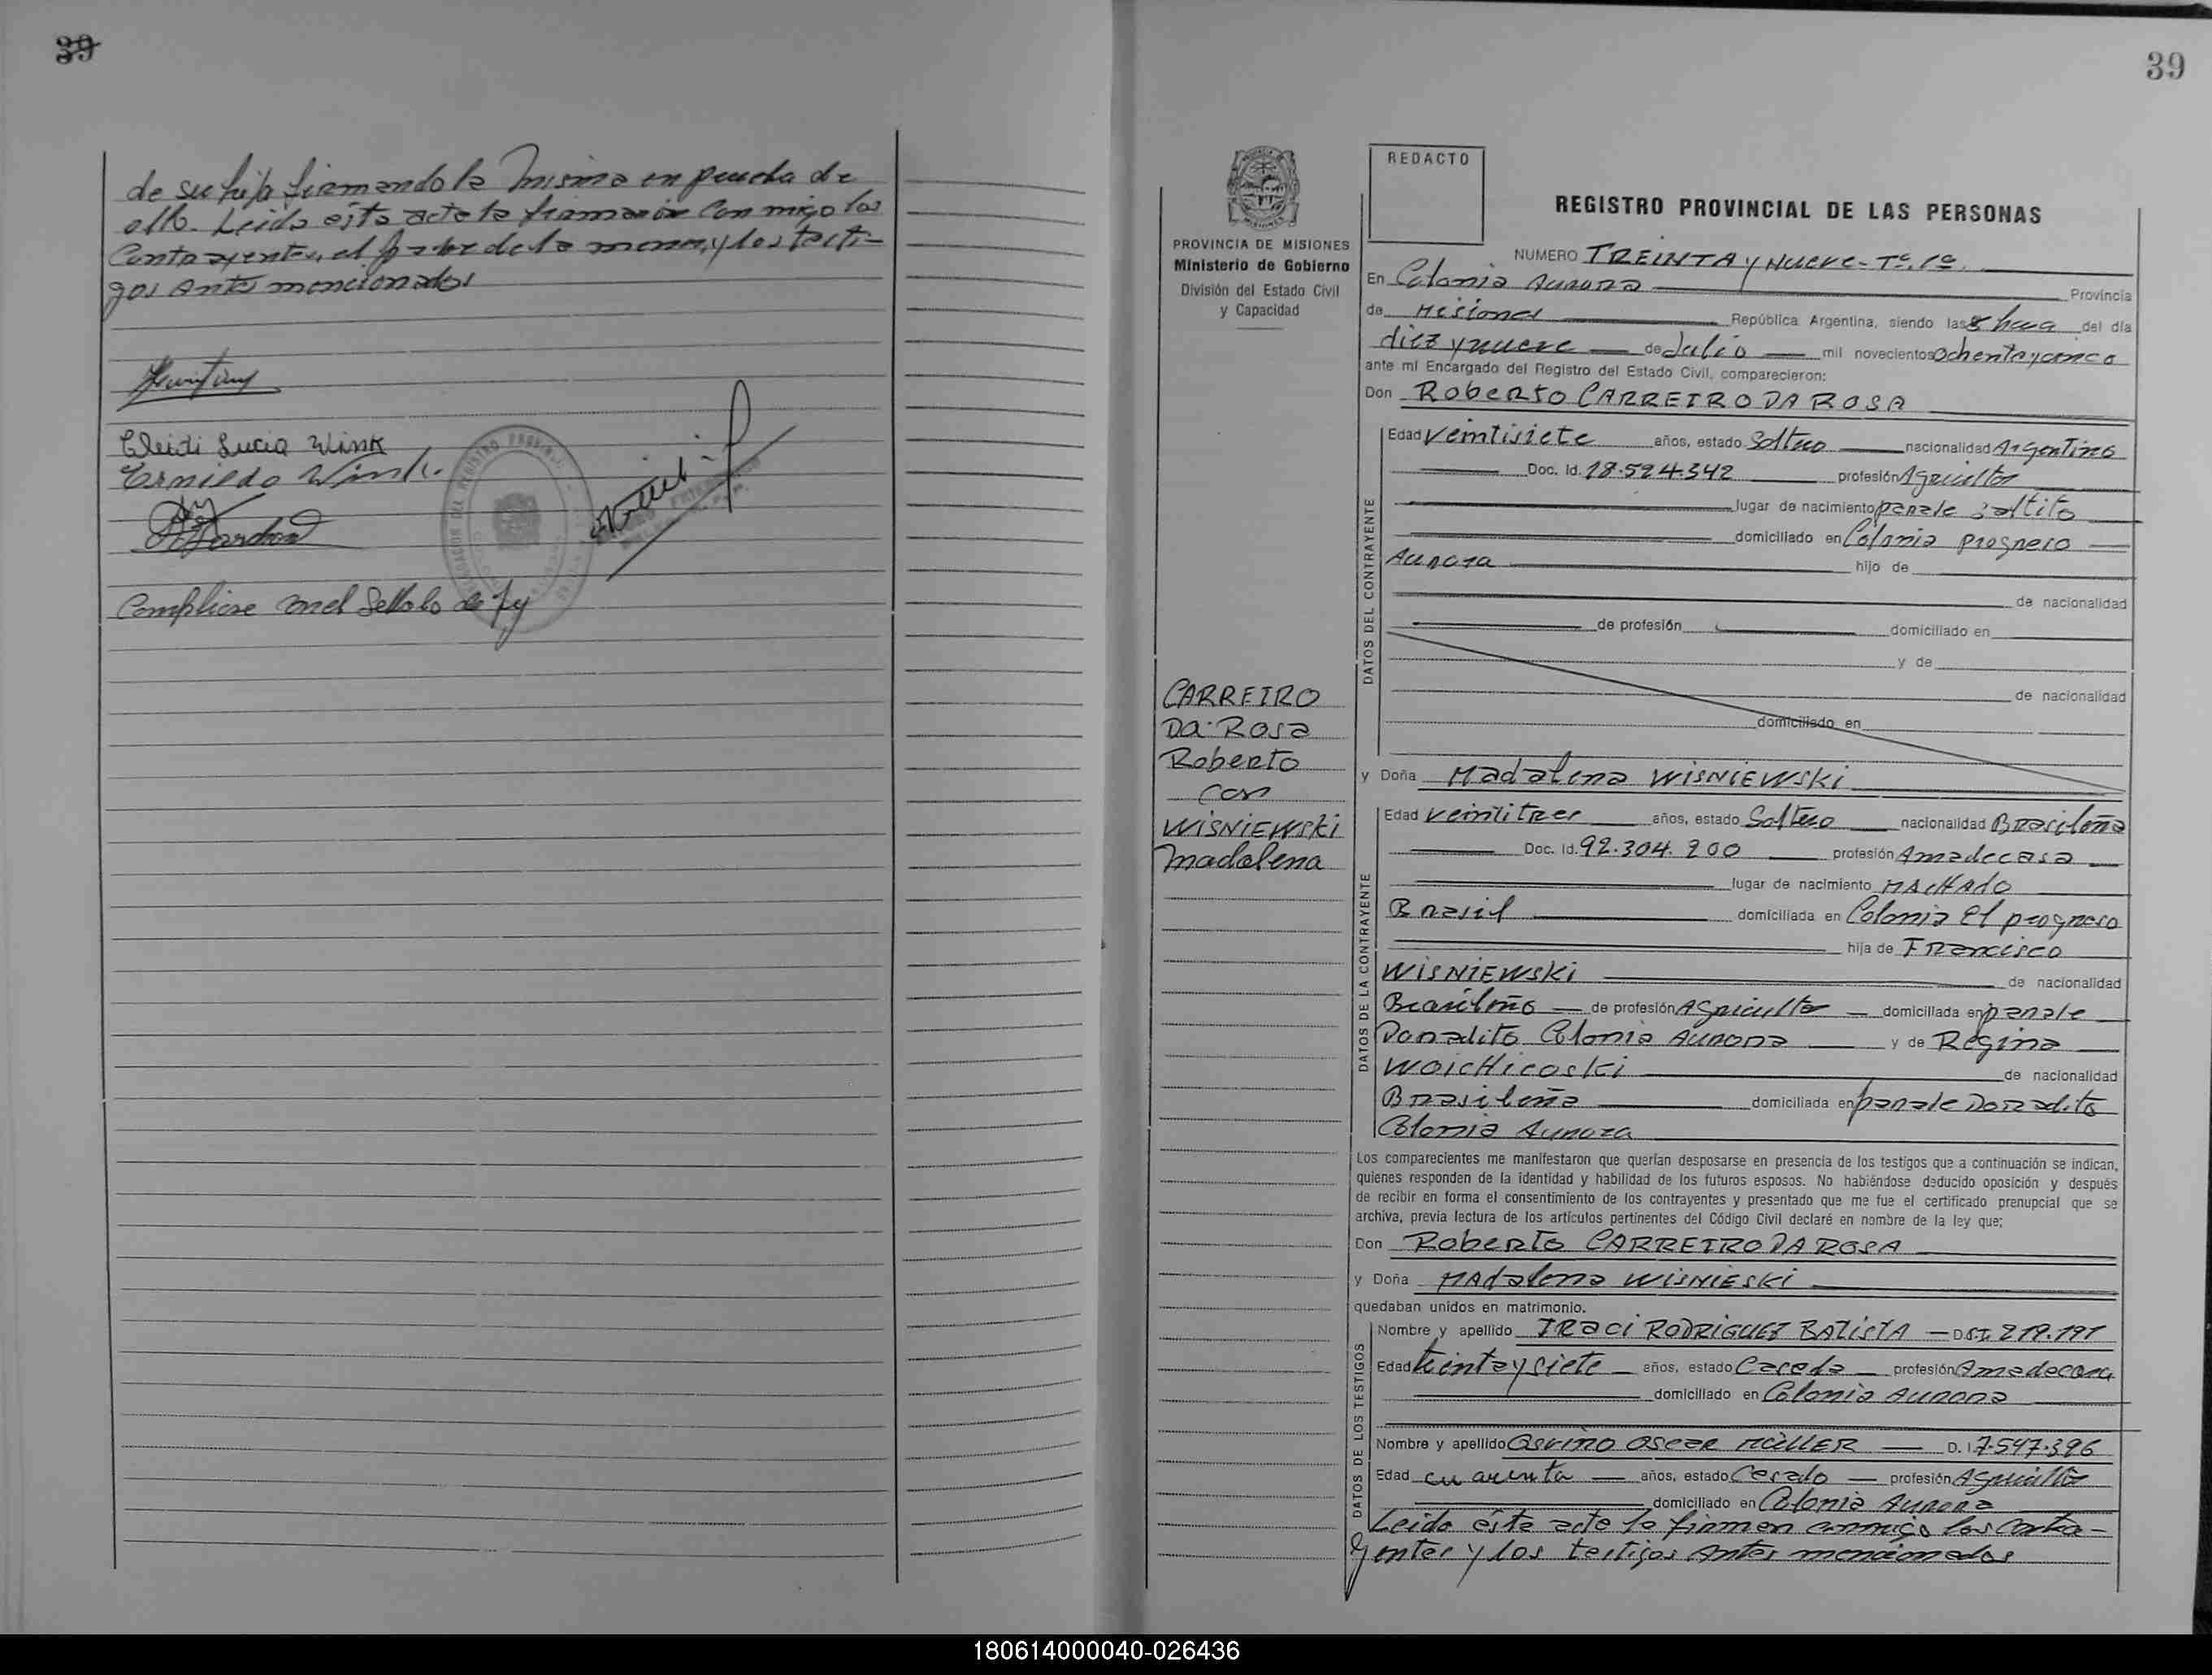 39
de su hija firmando la misma en prueba de
ello. Leida esta acta la firmaron conmigo los
Contrayentes, el padre de la menor, y los testi-
gos antes mencionados
Cleidi Lucia Wink
Ernildo Wink.
39
REDACTO
REGISTRO PROVINCIAL DE LAS PERSONAS
PROVINCIA DE MISIONES
Ministerio de Gobierno
División del Estado Civil
y Capacidad
NUMERO TREINTA y Nueve - Tº. 1º.
En Colonia Aurora Provincia
de Misiones República Argentina, siendo las 8 hora del día
diez y nueve de Julio mil novecientos Ochenta y cinco
ante mi Encargado del Registro del Estado Civil, comparecieron:
Don Roberto CARREIRO DA ROSA
DATOS DEL CONTRAYENTE
Edad Veintisiete años, estado Soltero nacionalidad Argentino
Doc. Id. 18.524.342 profesión Agricultor
lugar de nacimiento paraje Saltito
domiciliado en Colonia progreso
Aurora hijo de
de nacionalidad
de profesión domiciliado en
y de
de nacionalidad
domiciliado en
CARREIRO
DA ROSA
Roberto
con
WISNIEWSKI
Madalena
y Doña Madalena WISNIEWSKI
DATOS DE LA CONTRAYENTE
Edad veintitres años, estado Soltera nacionalidad Brasileña
Doc. Id. 92.304.200 profesión Ama de casa
lugar de nacimiento MACHADO
Brasil domiciliada en Colonia El progreso
hija de Francisco
WISNIEWSKI de nacionalidad
Brasileño de profesión Agricultor domiciliada en paraje
Doradito Colonia Aurora y de Regina
WOICHICOSKI de nacionalidad
Brasileña domiciliada en paraje Doradito
Colonia Aurora
Los comparecientes me manifestaron que querían desposarse en presencia de los testigos que a continuación se indican,
quienes responden de la identidad y habilidad de los futuros esposos. No habiéndose deducido oposición y después
de recibir en forma el consentimiento de los contrayentes y presentado que me fue el certificado prenupcial que se
archiva, previa lectura de los artículos pertinentes del Código Civil declaré en nombre de la ley que;
Don Roberto CARREIRO DA ROSA
y Doña MAdalena WISNIESKI
quedaban unidos en matrimonio.
DATOS DE LOS TESTIGOS
Nombre y apellido IRaci RODRIGUEZ BATISTA D.I. 219.191
Edad treinta y siete años, estado Casada profesión Ama de casa
domiciliado en Colonia Aurora
Nombre y apellido Oscar MÜLLER D. I. 7.547.396
Edad cuarenta años, estado Casado profesión Agricultor
domiciliado en Colonia Aurora
Leida esta acta la firman conmigo los contra-
yentes y los testigos antes mencionados
180614000040-026436